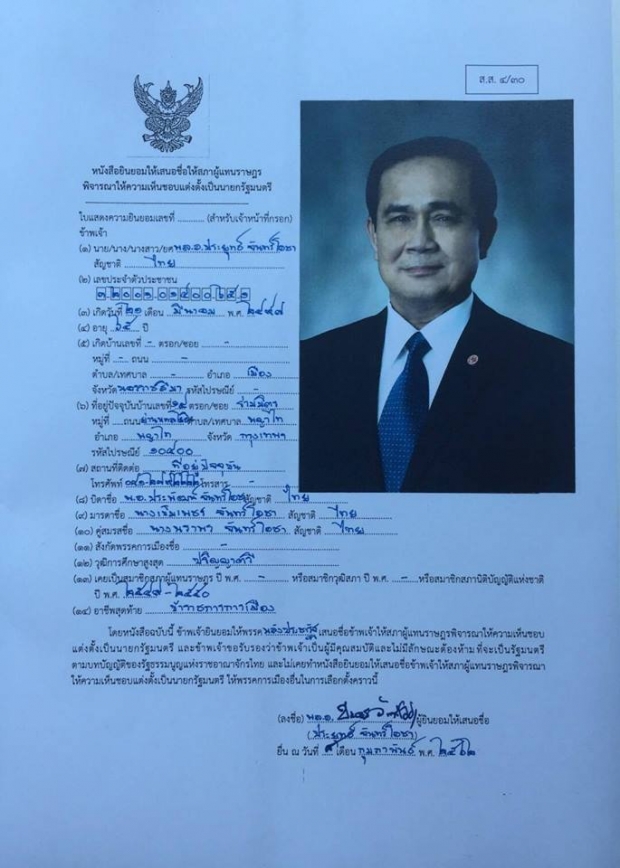 ส.ส. ๔/๓๐
หนังสือยินยอมให้เสนอชื่อให้สภาผู้แทนราษฎร
พิจารณาให้ความเห็นชอบแต่งตั้งเป็นนายกรัฐมนตรี
ใบแสดงความยินยอมเลขที่ ............ (สำหรับเจ้าหน้าที่กรอก)
ข้าพเจ้า
(๑) นาย/นาง/นางสาว/ยศ พล.อ.ประยุทธ์ จันทร์โอชา
สัญชาติ ไทย
(๒) เลขประจำตัวประชาชน
(๓) เกิดวันที่ ๒๑ เดือน มีนาคม พ.ศ. ๒๔๙๗
(๔) อายุ ปี
(๕) เกิดบ้านเลขที่ - ตรอก/ซอย -
หมู่ที่ - ถนน -
ตำบล/เทศบาล - อำเภอ เมือง
จังหวัด นครราชสีมา รหัสไปรษณีย์ -
(๖) ที่อยู่ปัจจุบันบ้านเลขที่ ตรอก/ซอย
หมู่ที่ ถนน ตำบล/เทศบาล พญาไท
อำเภอ พญาไท จังหวัด กรุงเทพฯ
รหัสไปรษณีย์ ๑๐๔๐๐
(๗) สถานที่ติดต่อ ที่อยู่ปัจจุบัน
โทรศัพท์ โทรสาร -
(๘) บิดาชื่อ พ.อ.ประพัฒน์ จันทร์โอชา สัญชาติ ไทย
(๙) มารดาชื่อ นางเข็มเพชร จันทร์โอชา สัญชาติ ไทย
(๑๐) คู่สมรสชื่อ นางนราพร จันทร์โอชา สัญชาติ ไทย
(๑๑) สังกัดพรรคการเมืองชื่อ -
(๑๒) วุฒิการศึกษาสูงสุด ปริญญาตรี
(๑๓) เคยเป็นสมาชิกสภาผู้แทนราษฎร ปี พ.ศ. - หรือสมาชิกวุฒิสภา ปี พ.ศ. - หรือสมาชิกสภานิติบัญญัติแห่งชาติ
ปี พ.ศ. ๒๕๔๙-๒๕๕๐
(๑๔) อาชีพสุดท้าย ข้าราชการการเมือง
โดยหนังสือฉบับนี้ ข้าพเจ้ายินยอมให้พรรค พลังประชารัฐ เสนอชื่อข้าพเจ้าให้สภาผู้แทนราษฎรพิจารณาให้ความเห็นชอบ
แต่งตั้งเป็นนายกรัฐมนตรี และข้าพเจ้าขอรับรองว่าข้าพเจ้าเป็นผู้มีคุณสมบัติและไม่มีลักษณะต้องห้าม ที่จะเป็นรัฐมนตรี
ตามบทบัญญัติของรัฐธรรมนูญแห่งราชอาณาจักรไทย และไม่เคยทำหนังสือยินยอมให้เสนอชื่อข้าพเจ้าให้สภาผู้แทนราษฎรพิจารณา
ให้ความเห็นชอบแต่งตั้งเป็นนายกรัฐมนตรี ให้พรรคการเมืองอื่นในการเลือกตั้งคราวนี้
(ลงชื่อ) พล.อ. ผู้ยินยอมให้เสนอชื่อ
(ประยุทธ์ จันทร์โอชา)
ยื่น ณ วันที่ ๘ เดือน กุมภาพันธ์ พ.ศ. ๒๕๖๒